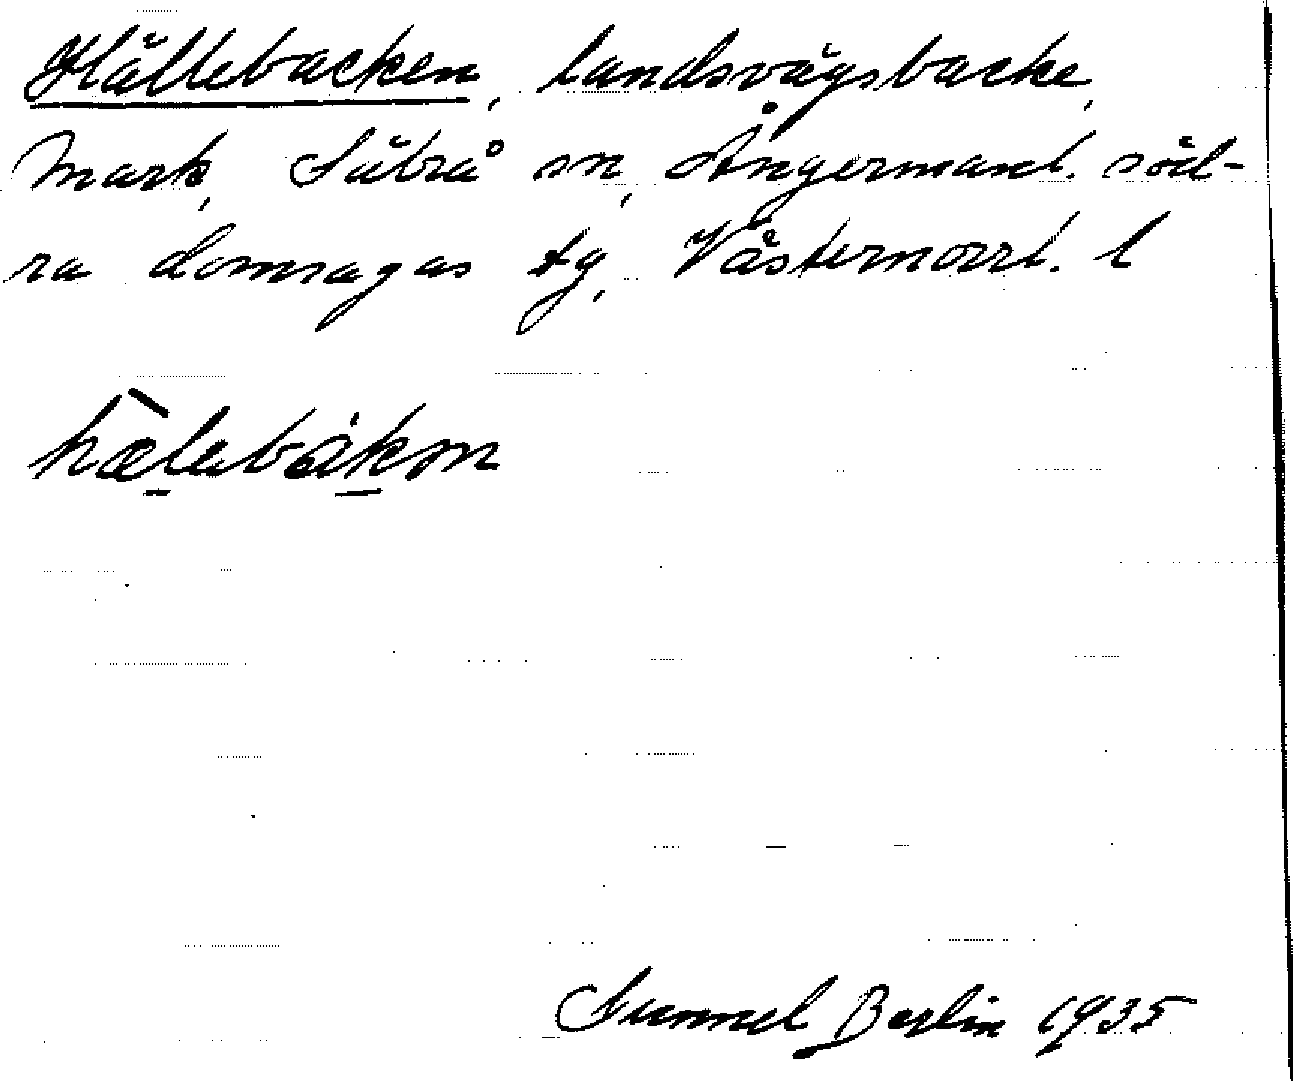 Hällebacken, landsvägsbacke,
Mark, Säbrå sn, Ångermanl. söd-
ra domsagas tg, Västernorrl. l
hælebákən
Gunnel Berlin 1935